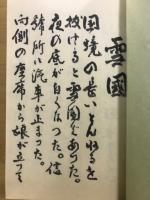 雪國
国境の長いとんねるを
抜けると雪国であった。
夜の底が白くなった。信
号所に汽車が止まった。
向側の座席から娘が立って